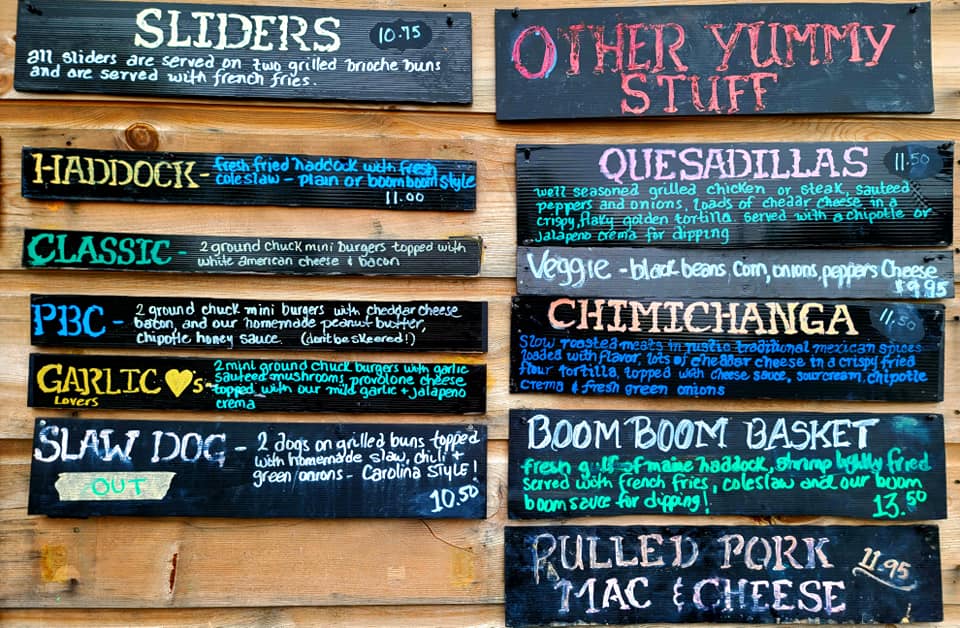 SLIDERS 10.75
all sliders are served on two grilled brioche buns
and are served with french fries.
HADDOCK - fresh fried haddock with fresh
coleslaw - plain or boom boom style
11.00
CLASSIC - 2 ground chuck mini burgers topped with
white american cheese & bacon
PBC - 2 ground chuck mini burgers with cheddar cheese
bacon, and our homemade peanut butter,
chipotle honey sauce. (don't be skeered!)
GARLIC ♥s - 2 mini ground chuck burgers with garlic
Lovers
sauteed mushrooms, provolone cheese
topped with our mild garlic + jalapeno
crema
SLAW DOG - 2 dogs on grilled buns topped
with homemade slaw, chili +
green onions - Carolina STYLE!
OUT
10.50
OTHER YUMMY
STUFF
QUESADILLAS 11.50
well seasoned grilled chicken or steak, sauteed
peppers and onions, loads of chedar cheese in a
crispy, flaky golden tortilla. served with a chipotle or
jalapeno crema for dipping
Veggie - black beans, corn, onions, peppers Cheese
$9.95
CHIMICHANGA 11.50
Slow roasted meats in rustic traditional mexican spices
loaded with flavor, lots of cheddar cheese in a crispy fried
flour tortilla, topped with cheese sauce, sour cream, chipotle
crema & fresh green onions
BOOM BOOM BASKET
fresh gulf of maine haddock, shrimp lightly fried
served with french fries, coleslaw and our boom
boom sauce for dipping! 13.50
PULLED PORK 11.95
MAC & CHEESE